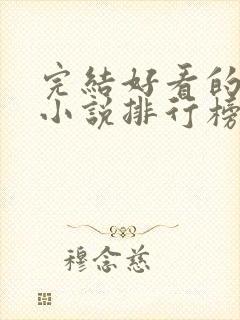 完結好看的
小說排行榜
穆念慈